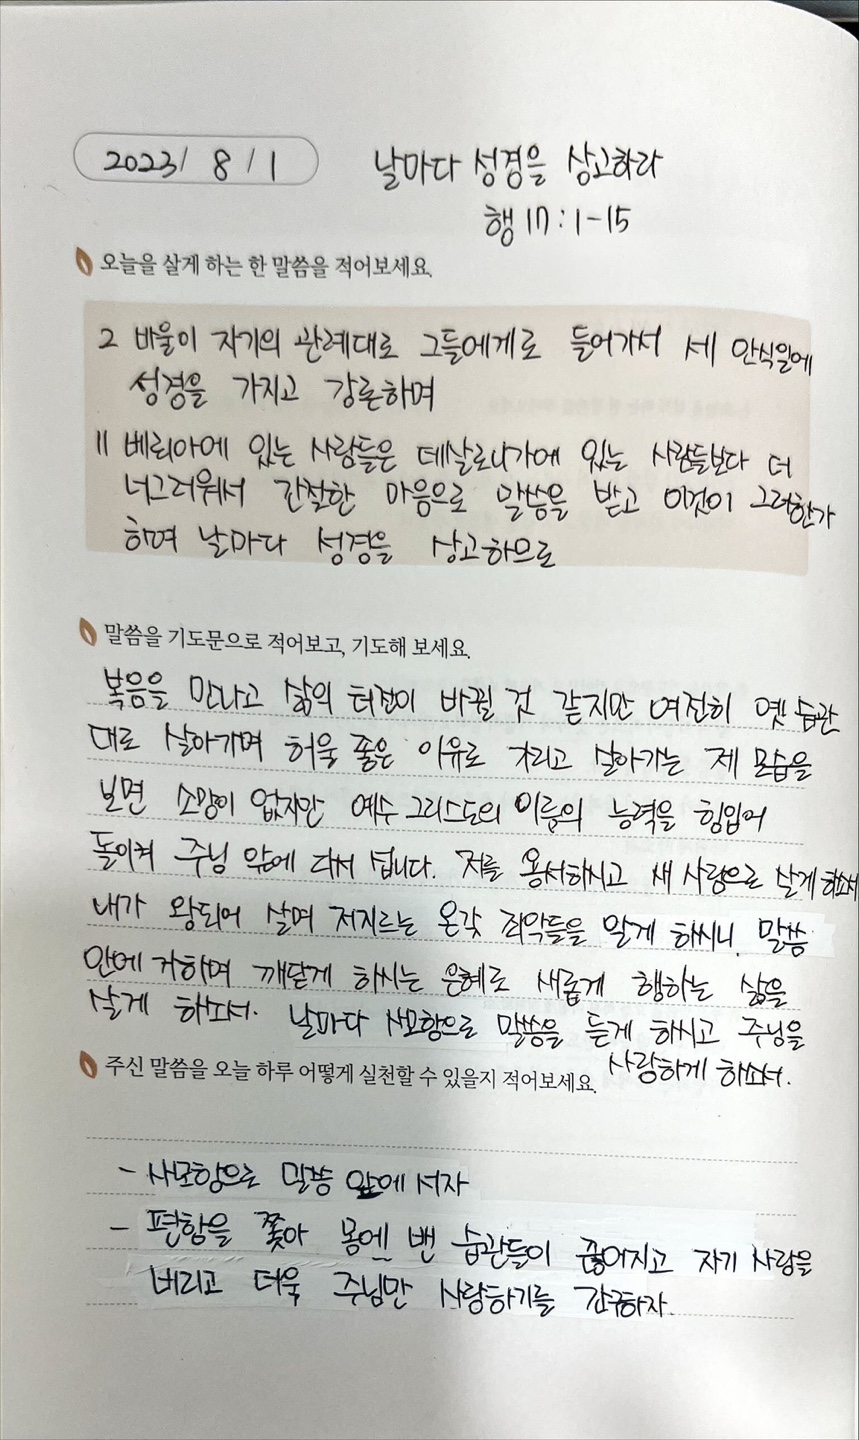 2023/ 8 / 1
날마다 성경을 상고하라
행 17 : 1-15
오늘을 살게 하는 한 말씀을 적어보세요.
2 바울이 자기의 관례대로 그들에게로 들어가서 세 안식일에
성경을 가지고 강론하며
11 베뢰아에 있는 사람들은 데살로니가에 있는 사람들보다 더
너그러워서 간절한 마음으로 말씀을 받고 이것이 그러한가
하여 날마다 성경을 상고하므로
말씀을 기도문으로 적어보고, 기도해 보세요.
복음을 만나고 삶의 터전이 바뀔 것 같지만 여전히 옛 습관
대로 살아가며 허울 좋은 이유로 가리고 살아가는 제 모습을
보면 소망이 없지만 예수 그리스도의 이름의 능력을 힘입어
돌이켜 주님 앞에 다시 섭니다. 저를 용서하시고 새 사람으로 살게 하소서
내가 왕되어 살며 저지르는 온갖 죄악들을 알게 하시니, 말씀
안에 거하며 깨닫게 하시는 은혜로 새롭게 행하는 삶을
살게 하소서. 날마다 사모함으로 말씀을 듣게 하시고 주님을
사랑하게 하소서.
주신 말씀을 오늘 하루 어떻게 실천할 수 있을지 적어보세요.
- 사모함으로 말씀 앞에 서자
- 편함을 쫓아 몸에 밴 습관들이 끊어지고 자기 사랑을
버리고 더욱 주님만 사랑하기를 간구하자.